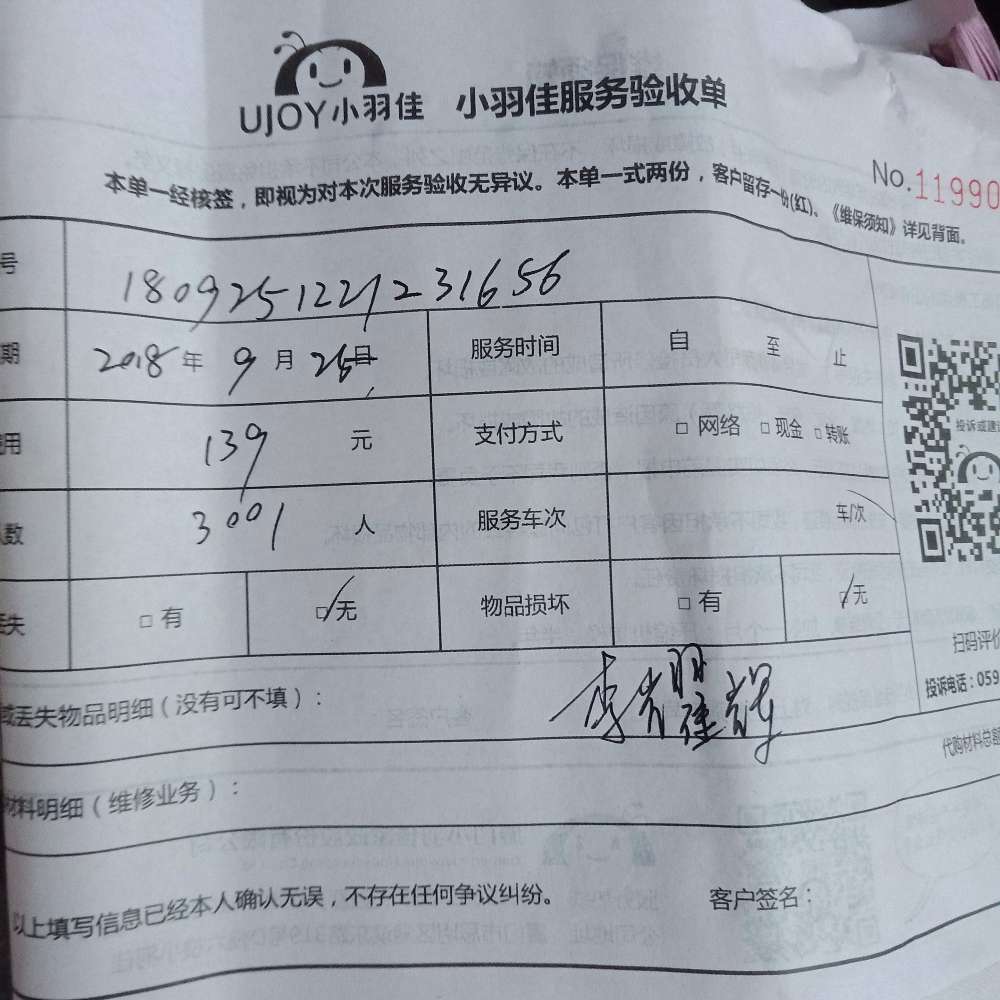 UJOY小羽佳 小羽佳服务验收单
No.11990
本单一经核签，即视为对本次服务验收无异议。本单一式两份，客户留存一份(红)。《维保须知》详见背面。
号 1809251221231656
期 2018年9月25日 服务时间 自 至 止
用 139 元 支付方式 □网络 □现金 □转账
人数 3001 人 服务车次 车/次
丢失 □有 □无 物品损坏 □有 □无
投诉或建议
扫码评价
投诉电话：059
或丢失物品明细（没有可不填）：
李耀辉
代购材料总额
材料明细（维修业务）：
以上填写信息已经本人确认无误，不存在任何争议纠纷。 客户签名：